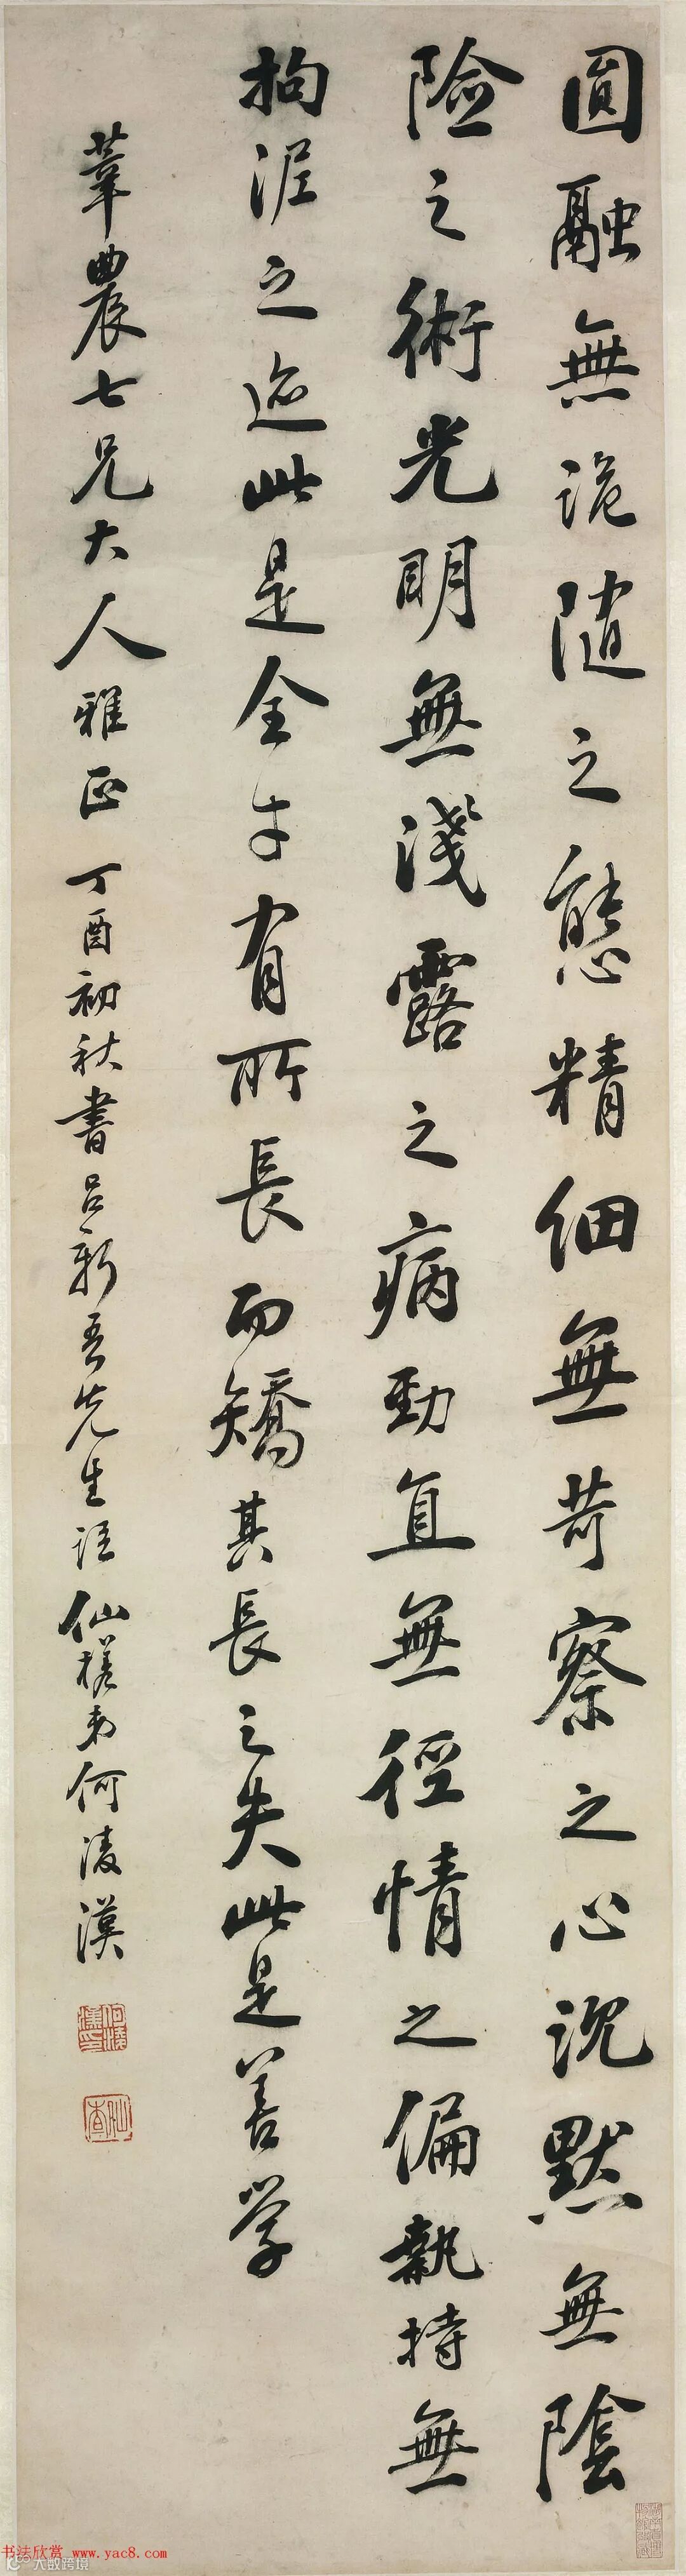 圓融無詭隨之態精細無苛察之心沉默無陰
險之術光明無淺露之病勁直無徑情之偏執持無
拘泥之迹此是全才有所長而矯其長之失此是善學
葦農七兄大人雅正 丁酉初秋書呂新吾先生語 仙槎弟何凌漢
何凌漢印
仙槎
书法欣赏 www.yac8.com
大数跨境